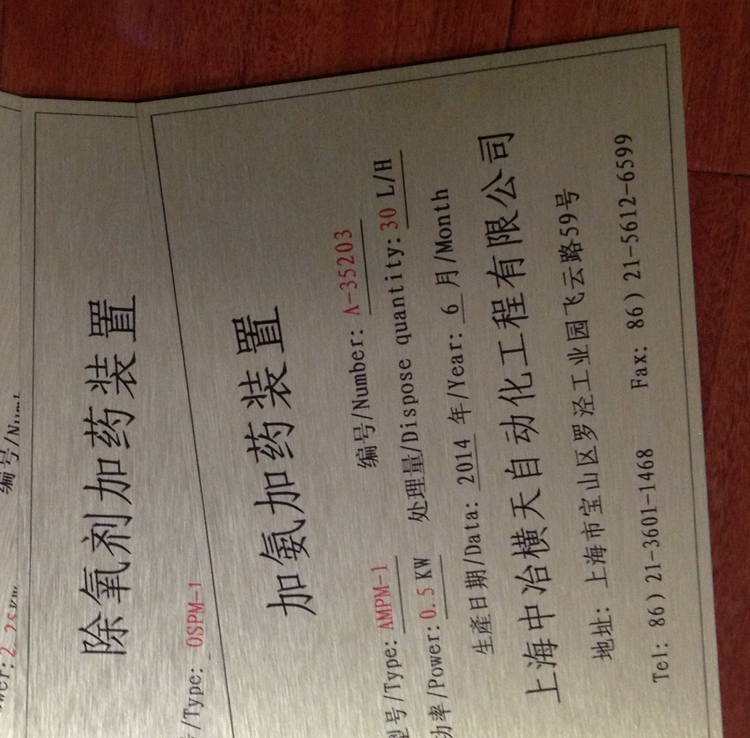 加氨加药装置
型号/Type: AMPM-1 编号/Number: A-35203
功率/Power: 0.5 KW 处理量/Dispose quantity: 30 L/H
生產日期/Data: 2014 年/Year: 6 月/Month
上海中冶横天自动化工程有限公司
地址: 上海市宝山区罗泾工业园飞云路59号
Tel: 86) 21-3601-1468 Fax: 86) 21-5612-6599
除氧剂加药装置
/Type: OSPM-1
编号